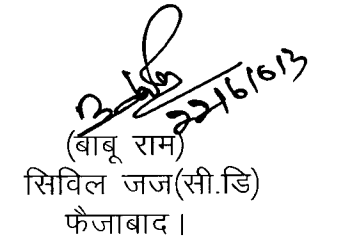 22/6/013
(बाबू राम)
सिविल जज(सी.डि)
फैजाबाद।